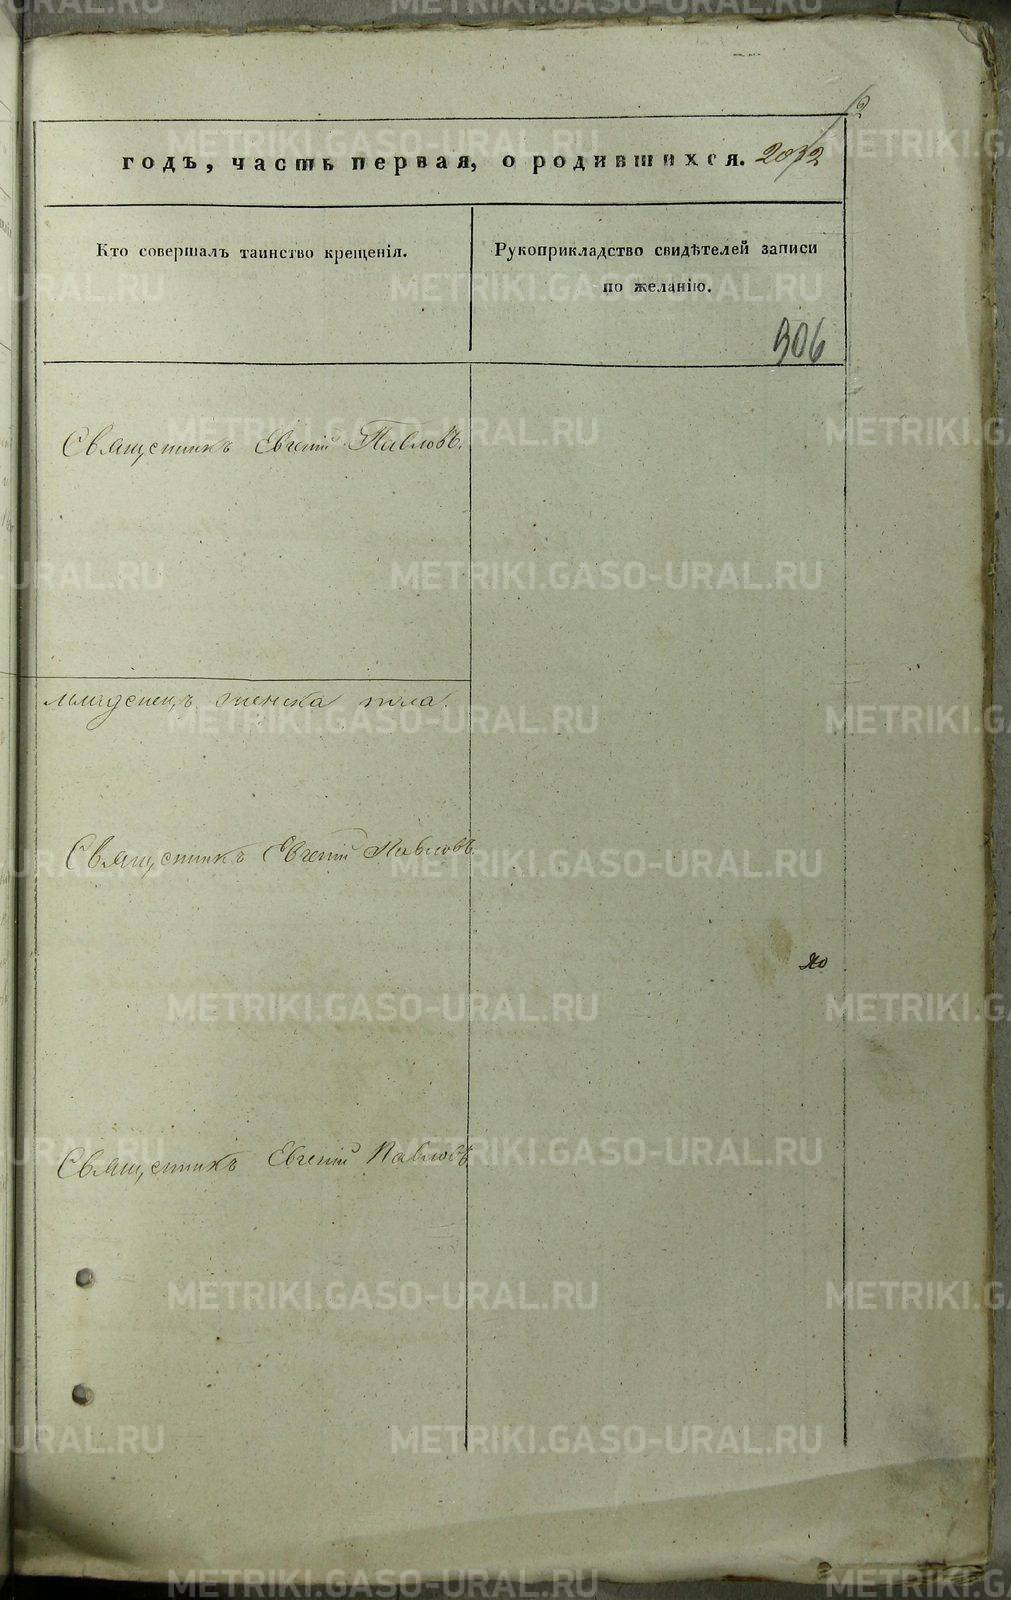 годъ, часть первая, о родившихся. 2032
Кто совершалъ таинство крещенія.
Рукоприкладство свидѣтелей записи
по желанію.
306
Священникъ Евгеній Павловъ.
младенецъ женска пола.
Священникъ Евгеній Павловъ.
Священникъ Евгеній Павловъ
METRIKI.GASO-URAL.RU